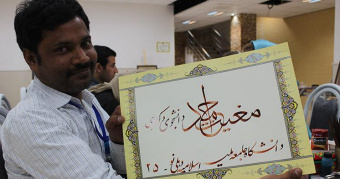 مغیث احمد دانشجوی دکتری
دانشگاه جامعه ملیه اسلامیه دهلی نو - ۲۵